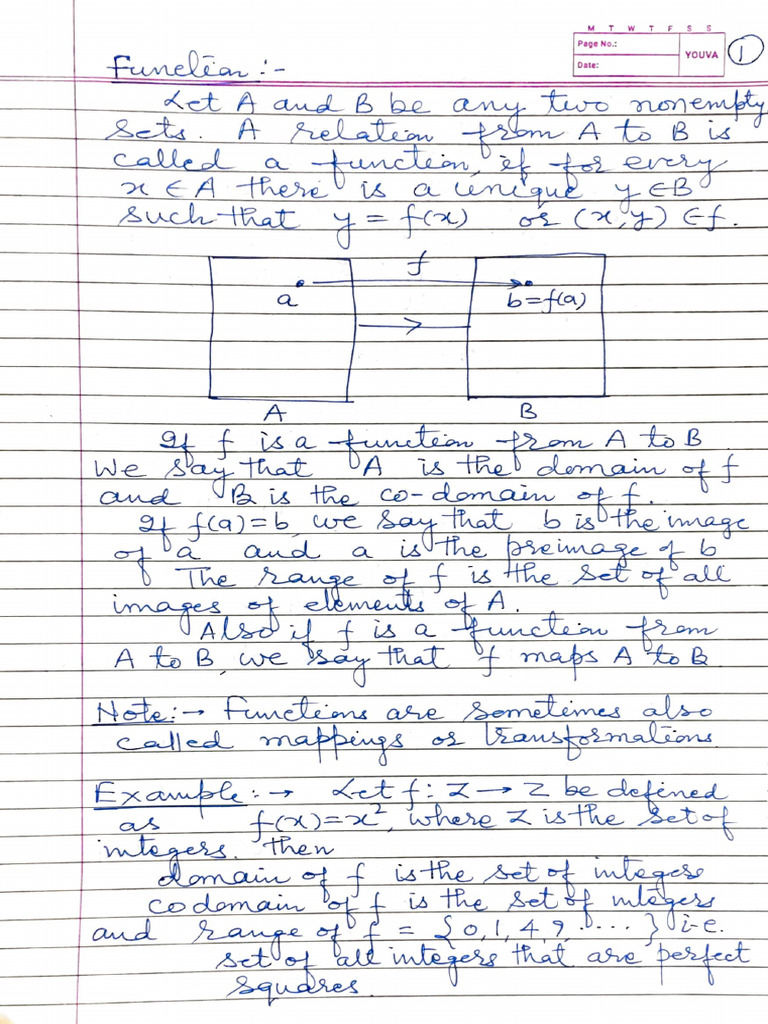 M T W T F S S
Page No.:
Date:
YOUVA
1
Function :-
Let A and B be any two nonempty
sets. A relation from A to B is
called a function, if for every
x ∈ A there is a unique y ∈ B
such that y = f(x) or (x, y) ∈ f.
f
a
b = f(a)
A
B
If f is a function from A to B
We say that A is the domain of f
and B is the co-domain of f.
If f(a) = b, we say that b is the image
of a and a is the preimage of b
The range of f is the set of all
images of elements of A.
Also if f is a function from
A to B, we say that f maps A to B
Note :→ Functions are sometimes also
called mappings or transformations
Example :→ Let f : Z → Z be defined
as f(x) = x², where Z is the set of
integers. Then
domain of f is the set of integers
codomain of f is the set of integers
and range of f = {0, 1, 4, 9, .....} i.e.
set of all integers that are perfect
squares.